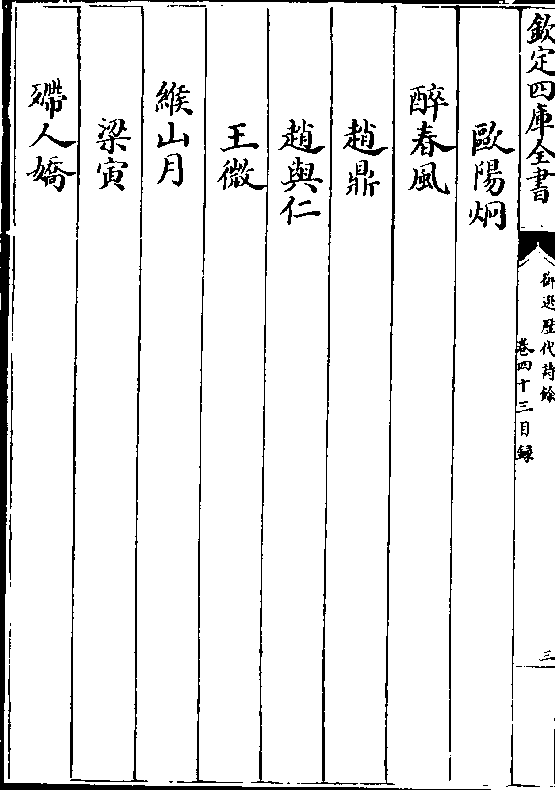 欽定四庫全書
御選歷代詩餘
卷四十三目録
三
歐陽炯
醉春風
趙鼎
趙與仁
王微
緱山月
梁寅
殢人嬌